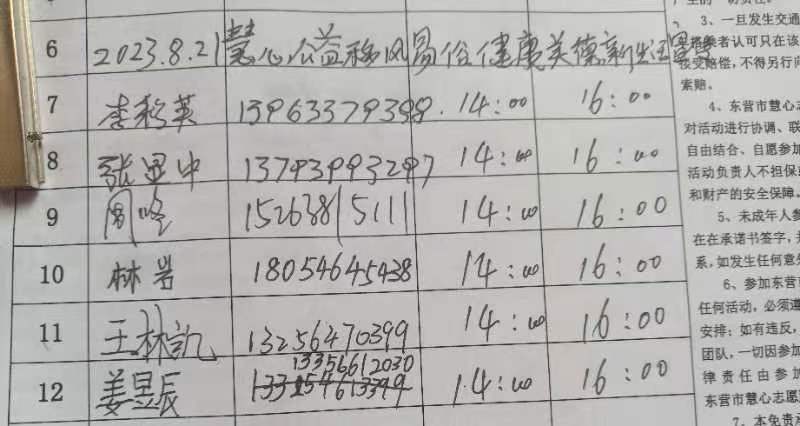 6 2023.8.21慧心公益移风易俗健康美德新生活
7 李彩英 13963379398. 14:00 16:00
8 张思中 13793993297 14:00 16:00
9 周咚 15263815111 14:00 16:00
10 林岩 18054645438 14:00 16:00
11 王林凯 13256470399 14:00 16:00
13356612030
12 姜昱辰 14:00 16:00
3、一旦发生交通
者认可只在该
接受赔偿,不得另行向
索赔。
4、东营市慧心志
对活动进行协调、联
自由结合、自愿参加
活动负责人不担保
和财产的安全保障。
5、未成年人参
在在承诺书签字,并
系,如发生任何意外
6、参加东营市
任何活动,必须遵
安排;如有违反,
团队,一切因参加
律责任由参加
东营市慧心志愿
7、本免责